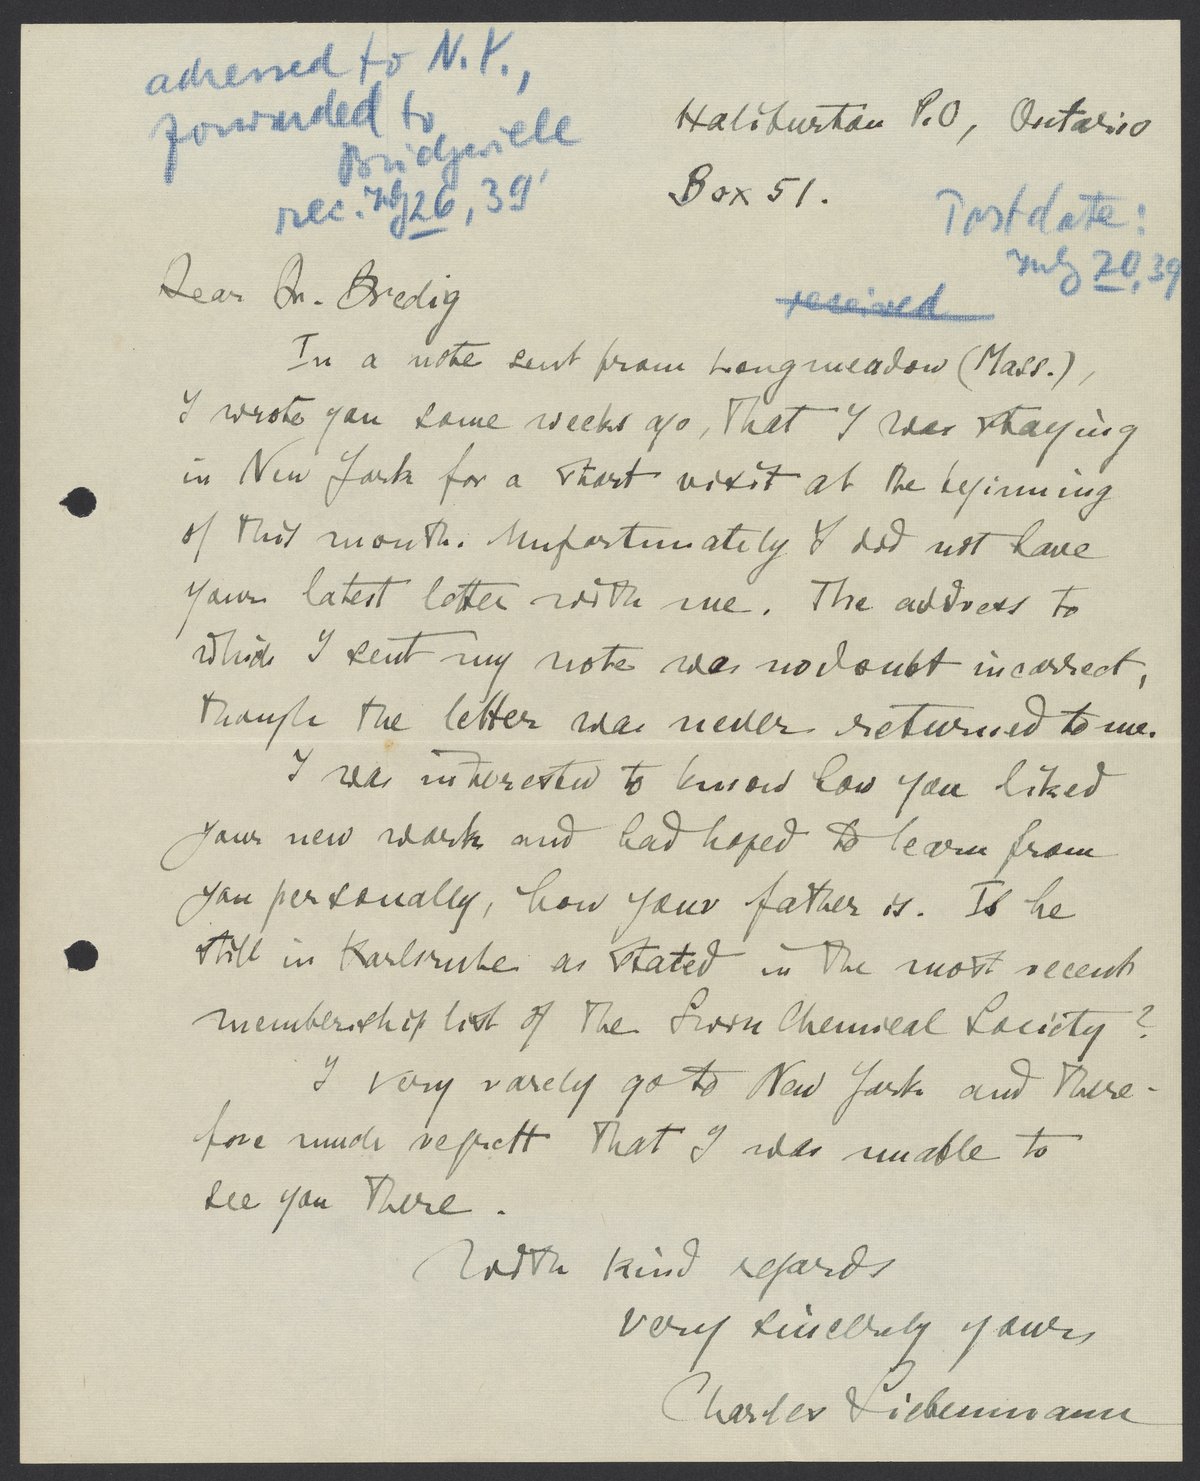 adressed to N.Y.,
forwarded to
Bridgeville
rec. July 26, 39'
Haliburton P.O, Ontario
Box 51.
Postdate:
July 20, 39
received
Dear Dr. Bredig
In a note sent from Longmeadow (Mass.),
I wrote you some weeks ago, that I was staying
in New York for a short visit at the beginning
of this month. Unfortunately I did not have
your latest letter with me. The address to
which I sent my note was no doubt incorrect,
though the letter was never returned to me.
I was interested to know how you liked
your new work and had hoped to learn from
you personally, how your father is. Is he
still in Karlsruhe as stated in the most recent
membership list of the Chemical Society?
I very rarely go to New York and there-
fore much regrett that I was unable to
see you there.
With kind regards
very sincerely yours
Charles Liebenmann